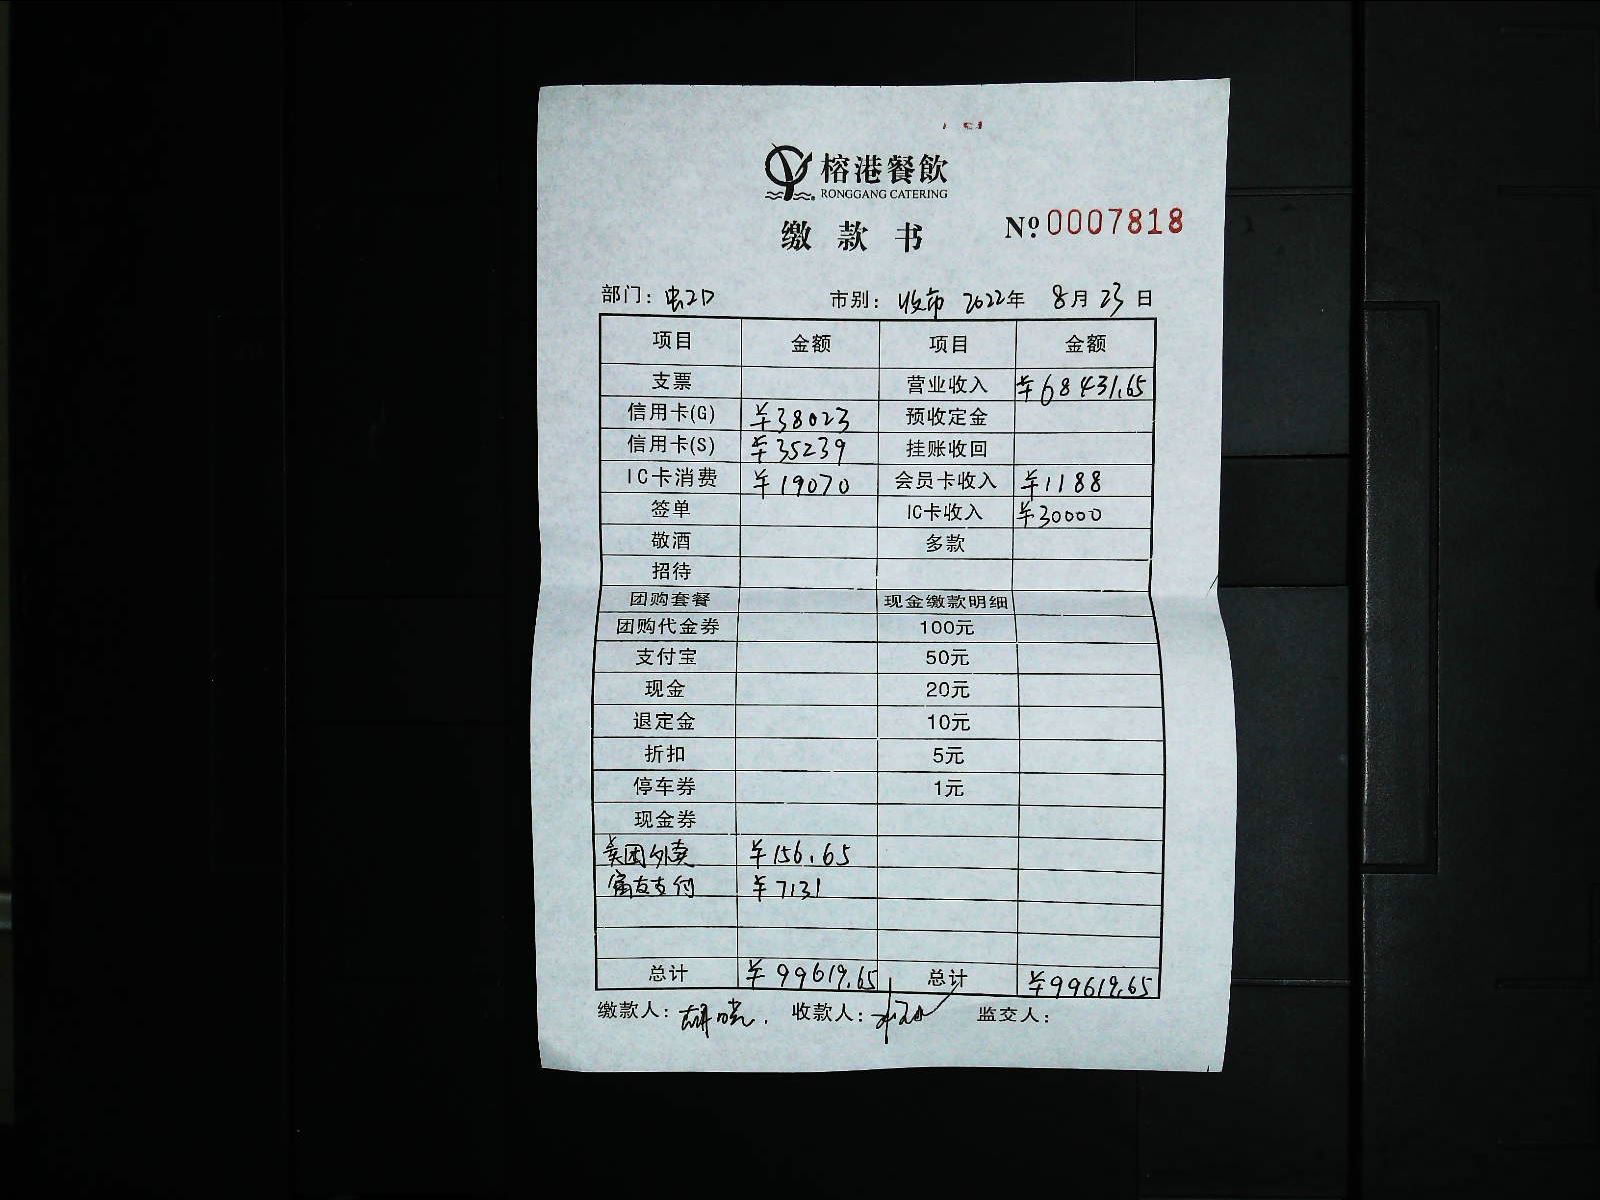 榕港餐飲
RONGGANG CATERING
缴款书 Nº 0007818
部门: 虫2口 市别: 收市 2022年 8月 23日
项目 金额 项目 金额
支票 营业收入 ¥68431.65
信用卡(G) ¥38023 预收定金
信用卡(S) ¥35239 挂账收回
IC卡消费 ¥19070 会员卡收入 ¥1188
签单 IC卡收入 ¥30000
敬酒 多款
招待
团购套餐 现金缴款明细
团购代金券 100元
支付宝 50元
现金 20元
退定金 10元
折扣 5元
停车券 1元
现金券
美团外卖 ¥156.65
富友支付 ¥7131
总计 ¥99619.65 总计 ¥99619.65
缴款人: 胡晓. 收款人: 监交人: